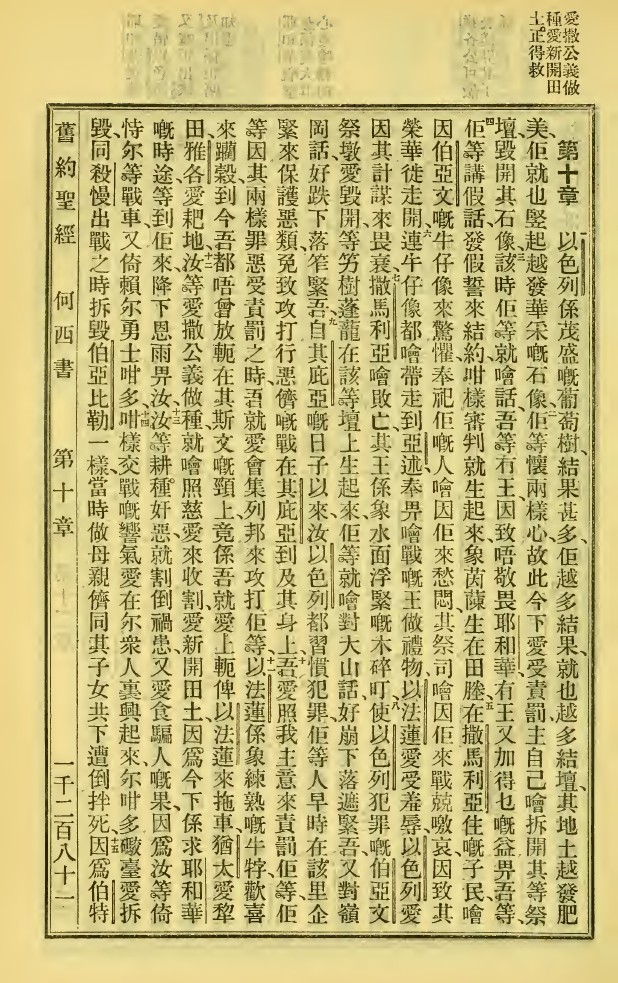 愛撒公義做
種愛新開田
土正得救
第十章　以色列係茂盛嘅葡萄樹結果甚多佢越多結果就也越多結壇其地土越發肥
美佢就也竪起越發華釆嘅石像佢等懷兩樣心故此今下愛受責罰主自己噲拆開其等祭
壇毀開其石像該時佢等就噲話吾等冇王因致唔敬畏耶和華冇王又加得乜嘅益畀吾等
佢等講假話發假誓來結約咁樣審判就生起來象茵蔯生在田塍在撒馬利亞住嘅子民噲
因伯亞文嘅牛仔像來驚懼奉祀佢嘅人噲因佢來愁悶其祭司噲因佢來戰兢噭哀因致其
榮華徙走開連牛仔像都噲帶走到亞述奉畀噲戰嘅王做禮物以法蓮愛受羞辱以色列愛
因其計謀來畏衰撒馬利亞噲敗亡其王係象水面浮緊嘅木碎叮使以色列犯罪嘅伯亞文
祭墩愛毀開等竻樹蓬蘢在該等壇上生起來佢等就噲對大山話好崩下落遮緊吾又對嶺
岡話好跌下落笮緊吾自其庇亞嘅日子以來汝以色列都習慣犯罪佢等人早時在該里企
緊來保護惡類免致攻打行惡儕嘅戰在其庇亞到及其身上吾愛照我主意來責罰佢等佢
等因其兩樣罪惡受責罰之時吾就愛會集列邦來攻打佢等以法蓮係象練熟嘅牛牸歡喜
來躪穀到今吾都唔曾放軛在其斯文嘅頸上竟係吾就愛上軛俾以法蓮來拖車猶太愛犂
田雅各愛耙地汝等愛撒公義做種就噲照慈愛來收割愛新開田土因爲今下係求耶和華
嘅時途等到佢來降下恩雨畀汝汝等耕種奸惡就割倒禍患又愛食騙人嘅果因爲汝等倚
恃尔等戰車又倚賴尔勇士咁多咁樣交戰嘅響氣愛在尔衆人裏興起來尔咁多礮臺愛拆
毀同殺慢出戰之時拆毀伯亞比勒一樣當時做母親儕同其子女共下遭倒拌死因爲伯特
舊約聖經　何西書　第十章　一千二百八十一